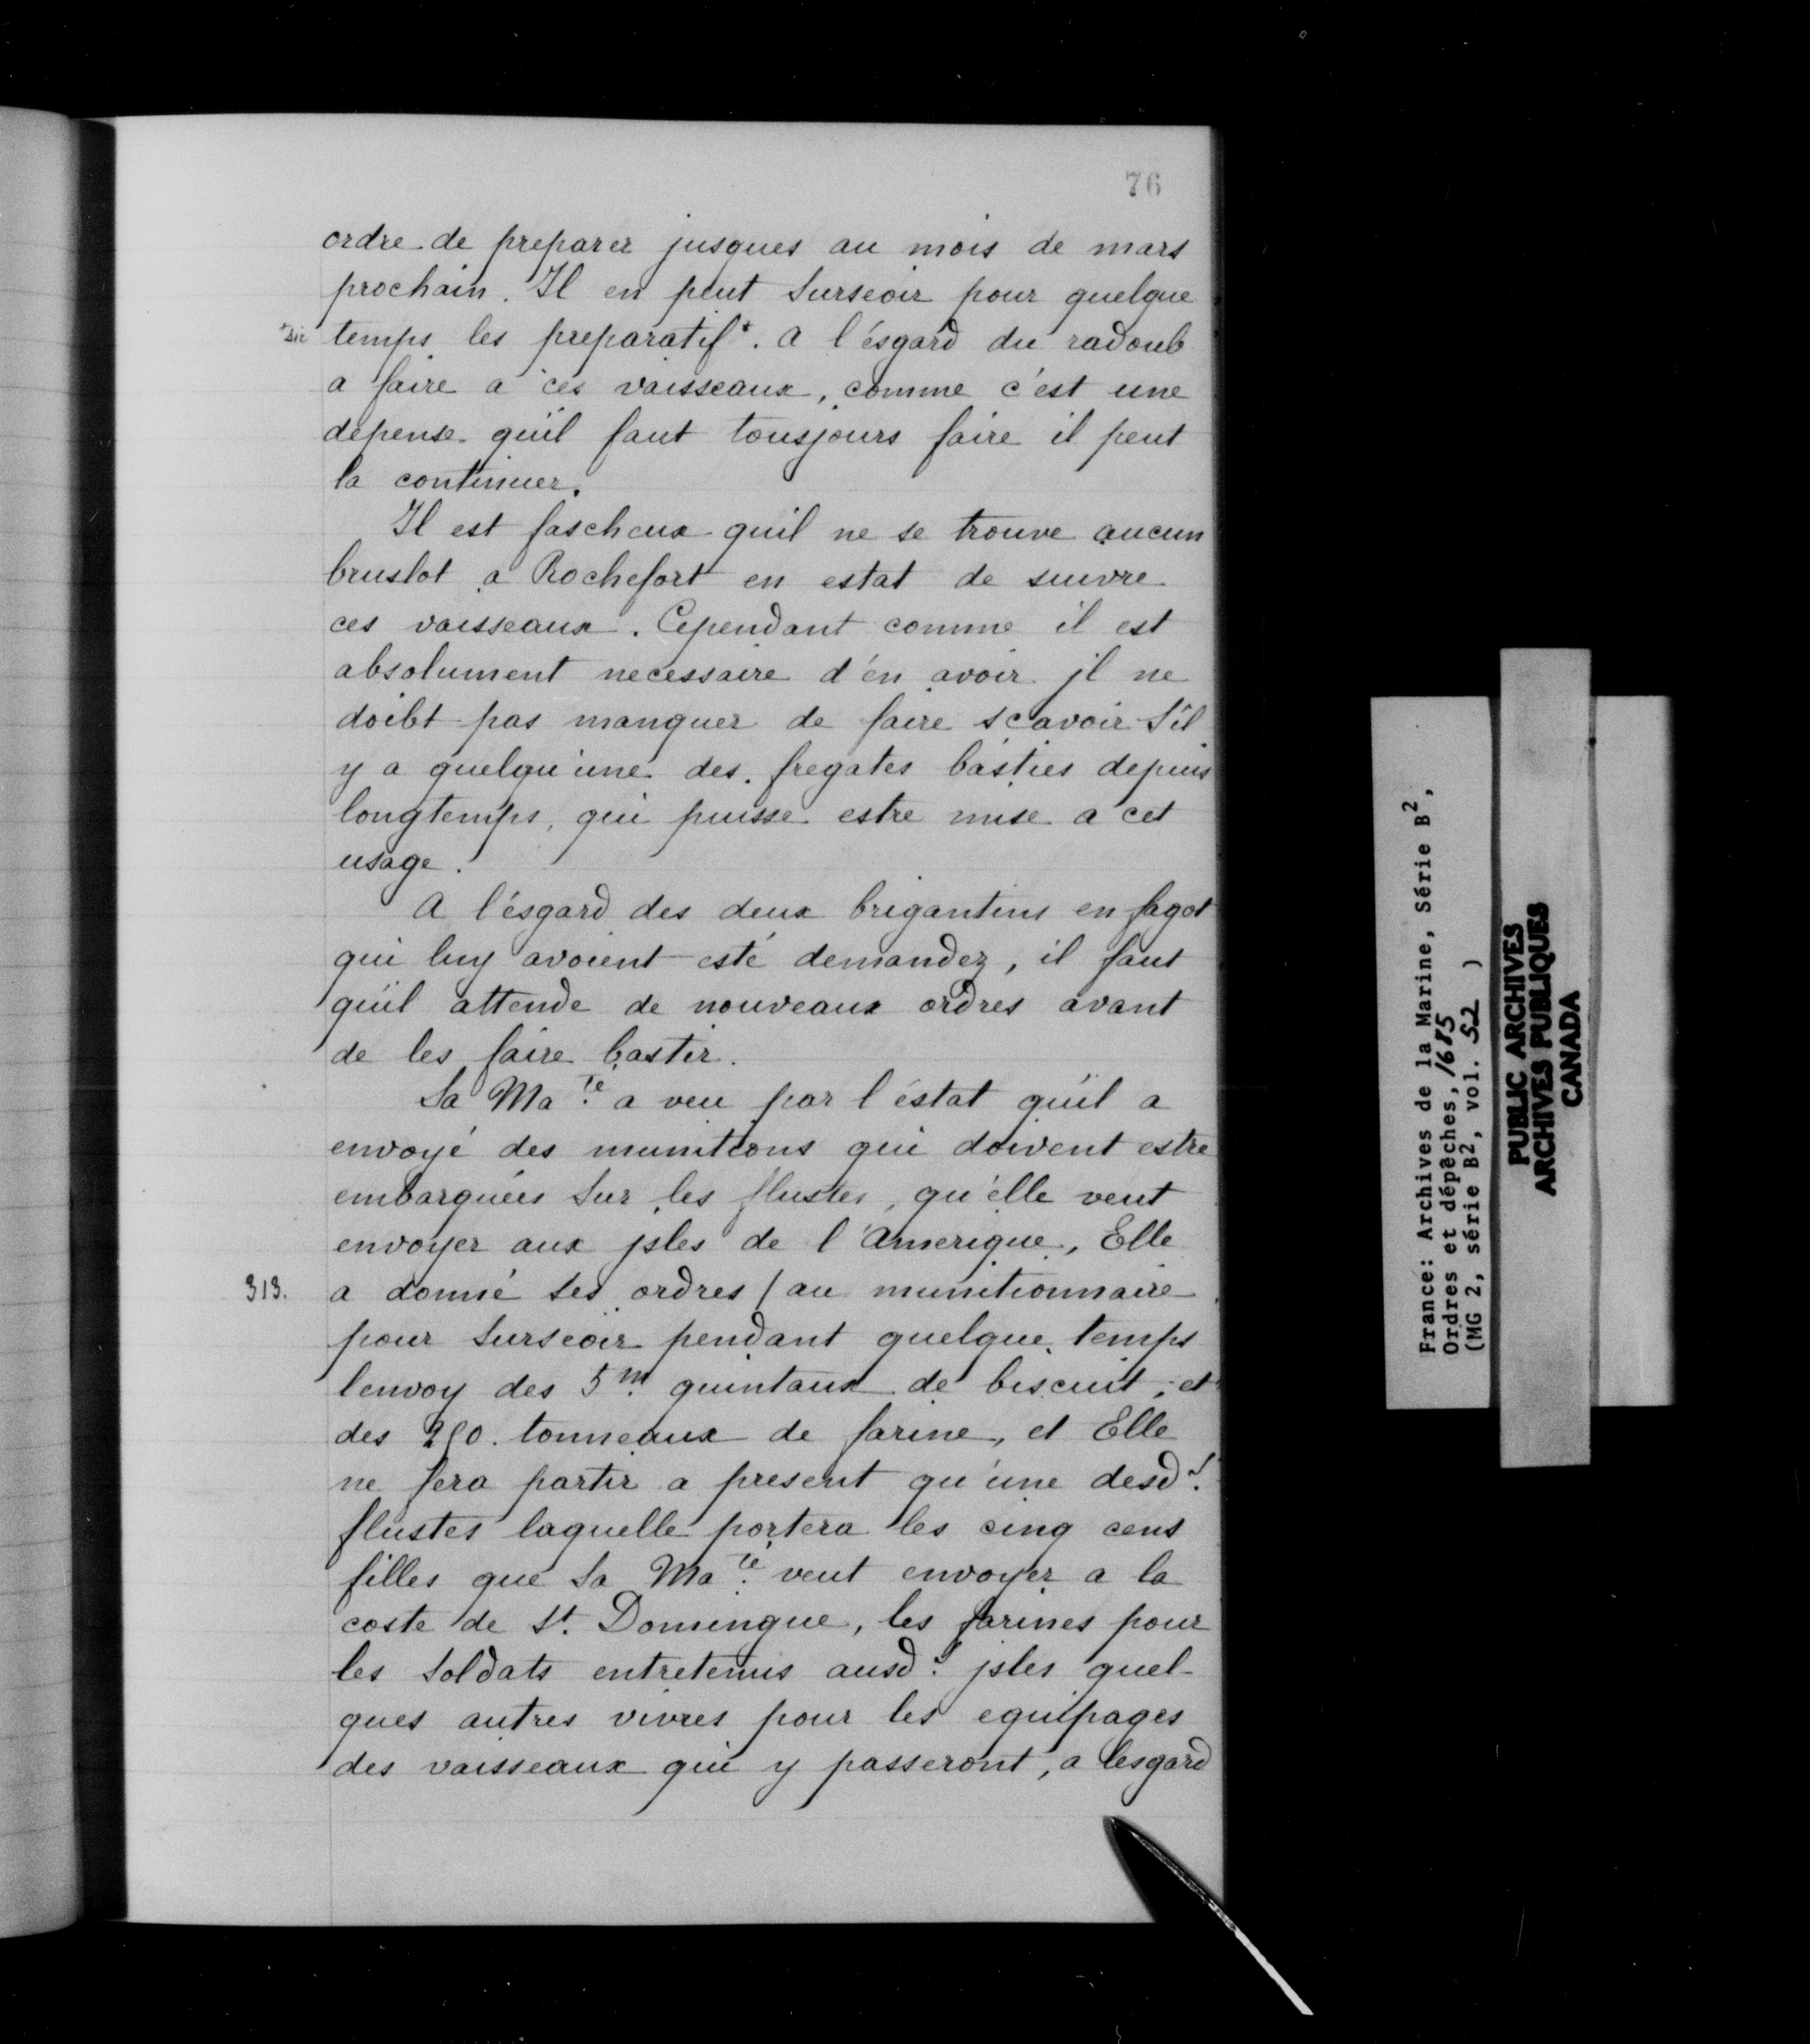 76
ordre de preparer jusques au mois de mars
prochain. Il en peut surseoir pour quelque
*Sic temps les preparatif*. a l'ésgard du radoub
a faire a ces vaisseaux, comme c'est une
depense qu'il faut tousjours faire il peut
la continuer.
Il est fascheux qu'il ne se trouve aucun
bruslot a Rochefort en estat de suivre
ces vaisseaux. Cependant comme il est
absolument necessaire d'en avoir jl ne
doibt pas manquer de faire scavoir s'il
y a quelqu'une des fregates basties depuis
longtemps, qui puisse estre mise a cet
usage.
A l'ésgard des deux brigantins en fagot
qui luy avoient esté demandez, il faut
qu'il attende de nouveaux ordres avant
de les faire bastir.
Sa Ma.té a veu par l'éstat qu'il a
envoyé des munitions qui doivent estre
embarquées sur les flustes, qu'elle veut
envoyer aux jsles de l'Amerique, Elle
313. a donné ses ordres / au munitionnaire
pour surseoir pendant quelque temps
lenvoy des 5.m quintaux de biscuit, et
des tonneaux de farine, et Elle
ne fera partir a present qu'une desd.s
flustes laquelle portera les cinq cens
filles que Sa Ma.té veut envoyer a la
coste de St. Domingue, les farines pour
les soldats entretenus ausd.s jsles quel-
ques autres vivres pour les equipages
des vaisseaux qui y passeront, a lesgard
France: Archives de la Marine, Série B2,
Ordres et dépêches, 1685
(MG 2, série B2, vol. 52 )
PUBLIC ARCHIVES
ARCHIVES PUBLIQUES
CANADA